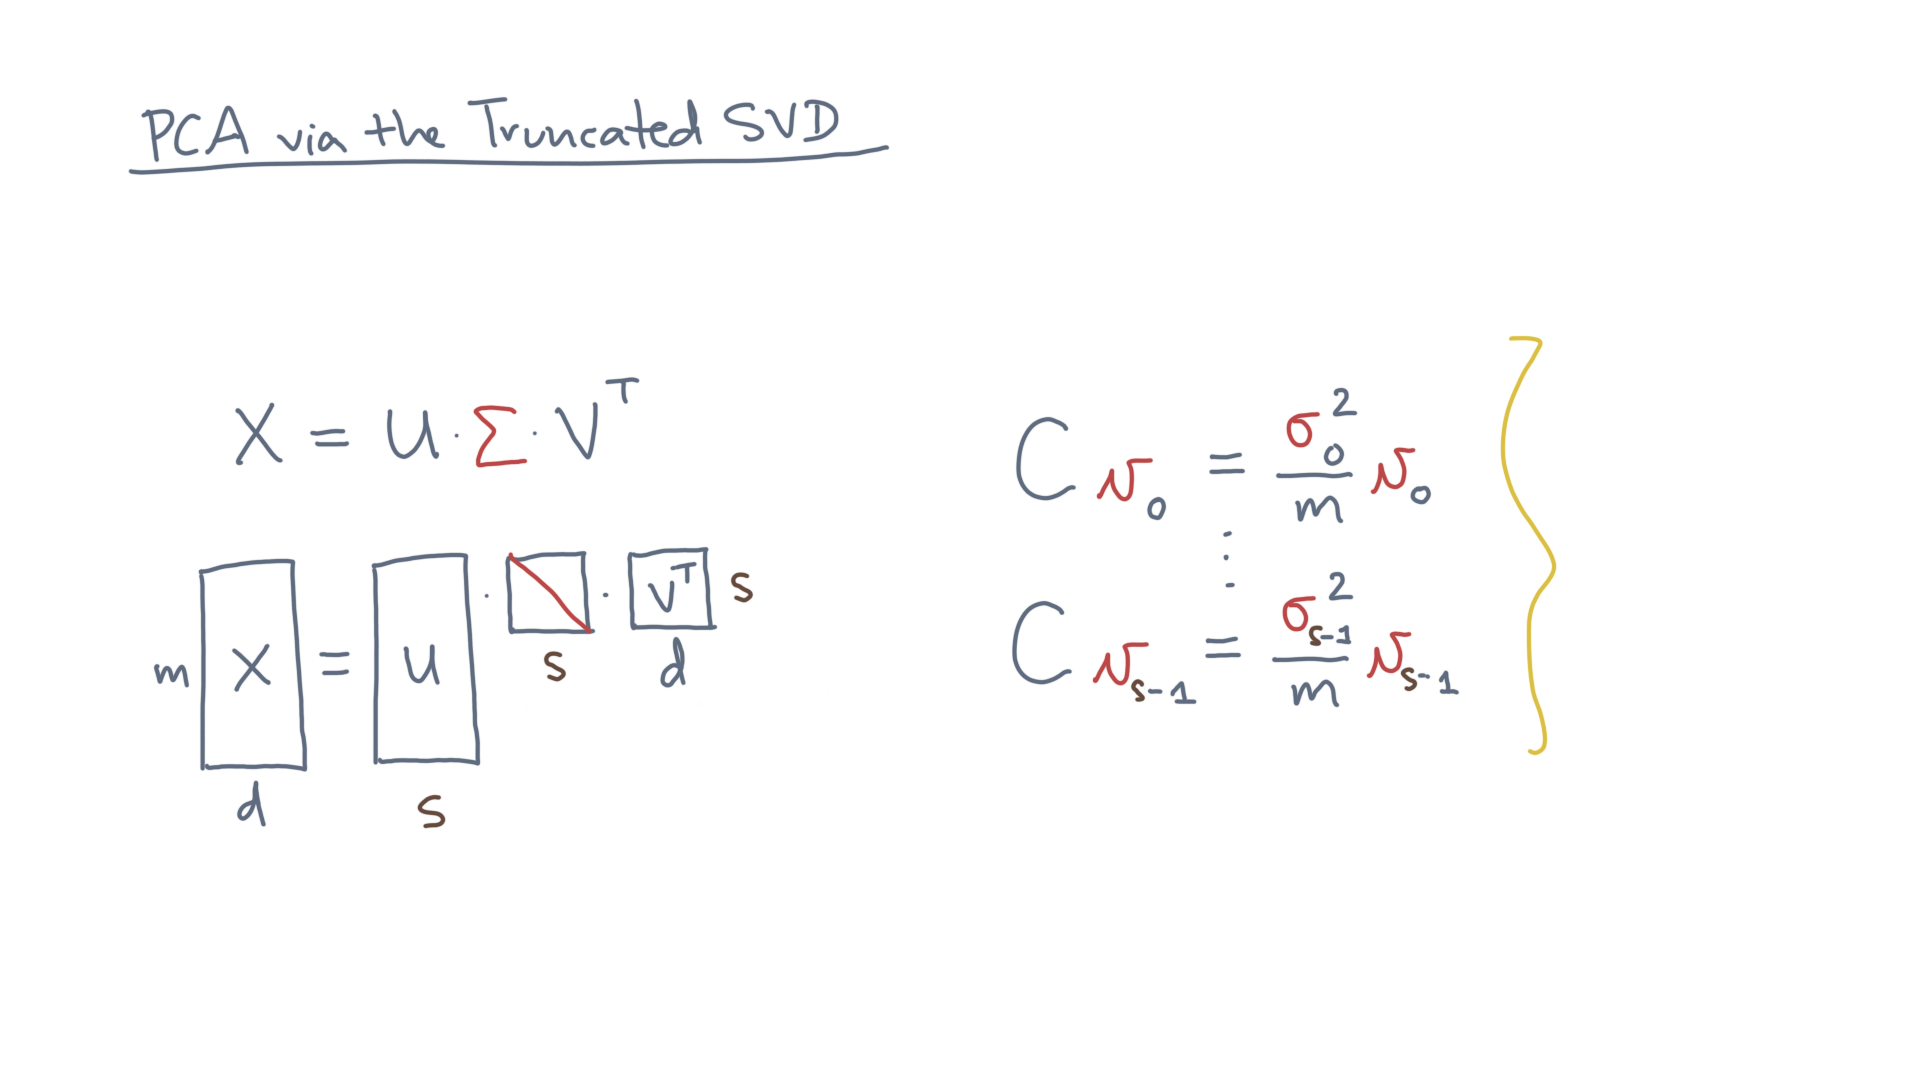 PCA via the Truncated SVD
X = U · Σ · Vᵀ
m X = U · · Vᵀ s
d s s d
C v₀ = σ₀² / m v₀
⋮
C vₛ₋₁ = σₛ₋₁² / m vₛ₋₁